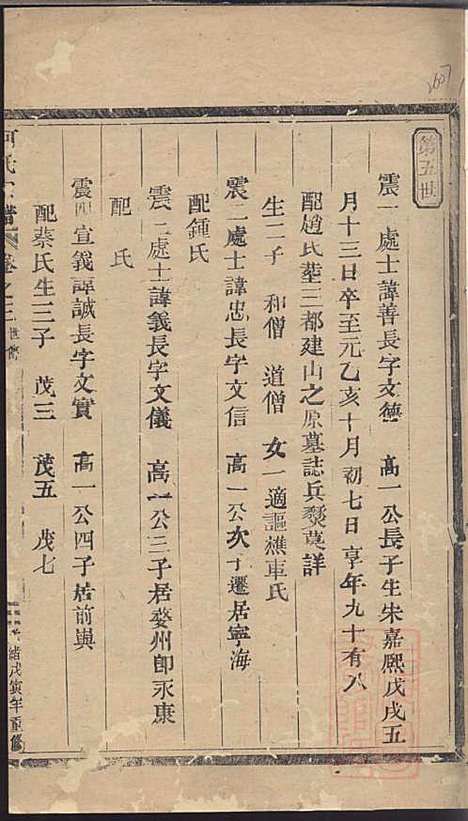 2607
第五世
震一處士諱善長字文德 高一公長子生朱嘉熙戊戌五
月十三日卒至元乙亥十月初七日亨年九十有八
配趙氏塟三都建山之原墓誌兵燹莫詳
生二子 和僧 道僧 女一適謳樵車氏
震二處士諱忠長字文信 高一公次子遷居寧海
配鍾氏
震三處士諱義長字文儀 高一公三子居婺州卽永康
配 氏
震四宣義諱誠長字文實 高一公四子居前與
配蔡氏生三子 茂三 茂五 茂七
何氏宗譜 卷之三 世傳
緒戊寅年重修